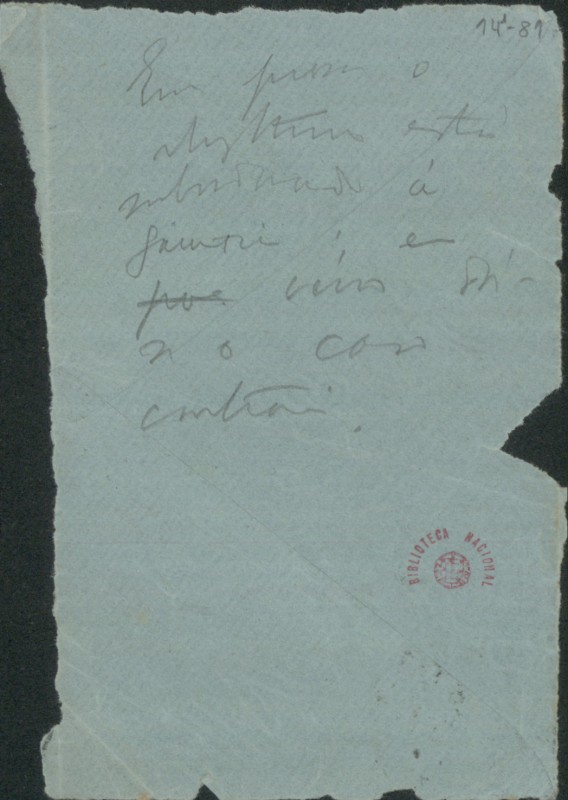 14¹-81
Em prosa o
rhythmo está
subordinado á
e em
pos verso
no caso
contrario.
BIBLIOTECA NACIONAL